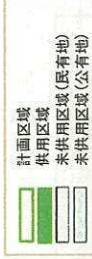 計画区域
供用区域
未供用区域(民有地)
未供用区域(公有地)